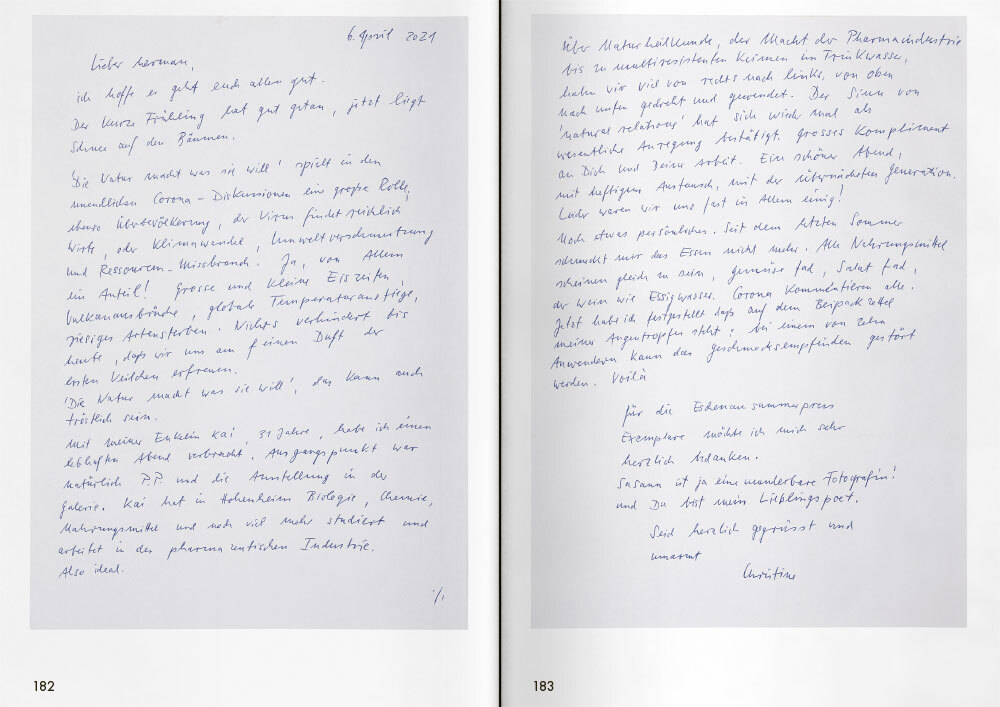 6. April 2021
Lieber herman,
ich hoffe es geht euch allen gut.
Der kurze Frühling hat gut getan, jetzt liegt
Schnee auf den Bäumen.
'Die Natur macht was sie will' spielt in den
unendlichen Corona-Diskussionen eine große Rolle,
ebenso Überbevölkerung, der Virus findet reichlich
Wirte, oder Klimawende, Umweltverschmutzung
und Ressourcen-Missbrauch. Ja, von Allem
ein Anteil! Grosse und kleine Eiszeiten
Vulkanausbrüche, globale Temperaturanstiege,
riesiges Artensterben. Nichts verhindert bis
heute, daß wir uns am feinen Duft der
ersten Veilchen erfreuen.
'Die Natur macht was sie will', das kann auch
tröstlich sein.
Mit meiner Enkelin Kai, 31 Jahre, habe ich einen
lebhaften Abend verbracht. Ausgangspunkt war
natürlich P.P. und die Ausstellung in der
Galerie. Kai hat in Hohenheim Biologie, Chemie,
Nahrungsmittel und noch viel mehr studiert und
arbeitet in der pharmazeutischen Industrie.
Also ideal.
./.
182
Über Naturheilkunde, der Macht der Pharmaindustrie
bis zu multiresistenten Keimen im Trinkwasser,
haben wir viel von rechts nach links, von oben
nach unten gedreht und gewendet. Der Sinn von
'natural relations' hat sich wieder mal als
wesentliche Anregung bestätigt. Grosses Kompliment
an Dich und Deine Arbeit. Ein schöner Abend,
mit heftigem Austausch, mit der übernächsten Generation.
Leider waren wir uns fast in Allem einig!
Noch etwas persönliches. Seit dem letzten Sommer
schmeckt mir das Essen nicht mehr. Alle Nahrungsmittel
scheinen gleich zu sein, Gemüse fad, Salat fad,
der Wein wie Essigwasser. Corona kommentieren alle.
Jetzt habe ich festgestellt daß auf dem Beipackzettel
meiner Augentropfen steht: bei einem von zehn
Anwendern kann das Geschmacksempfinden gestört
werden. Voilà
für die Eschenau summerpress
Exemplare möchte ich mich sehr
herzlich bedanken.
Susann ist ja eine wunderbare Fotografin!
und Du bist mein Lieblingspoet.
Seid herzlich gegrüsst und
umarmt
Christine
183